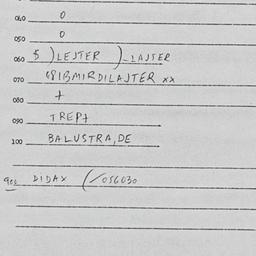 040 0
050 0
060 5 ) LEJTER )-LAJTER
070 081BMIRDILAJTER xx
080 +
090 TREP+
100 BALUSTRA,DE
902 DIDAX (/056030